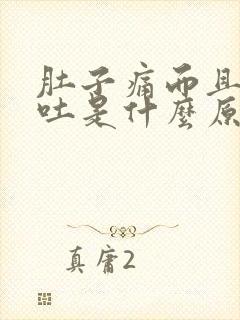 肚子痛而且
吐是什麼原
真庸2